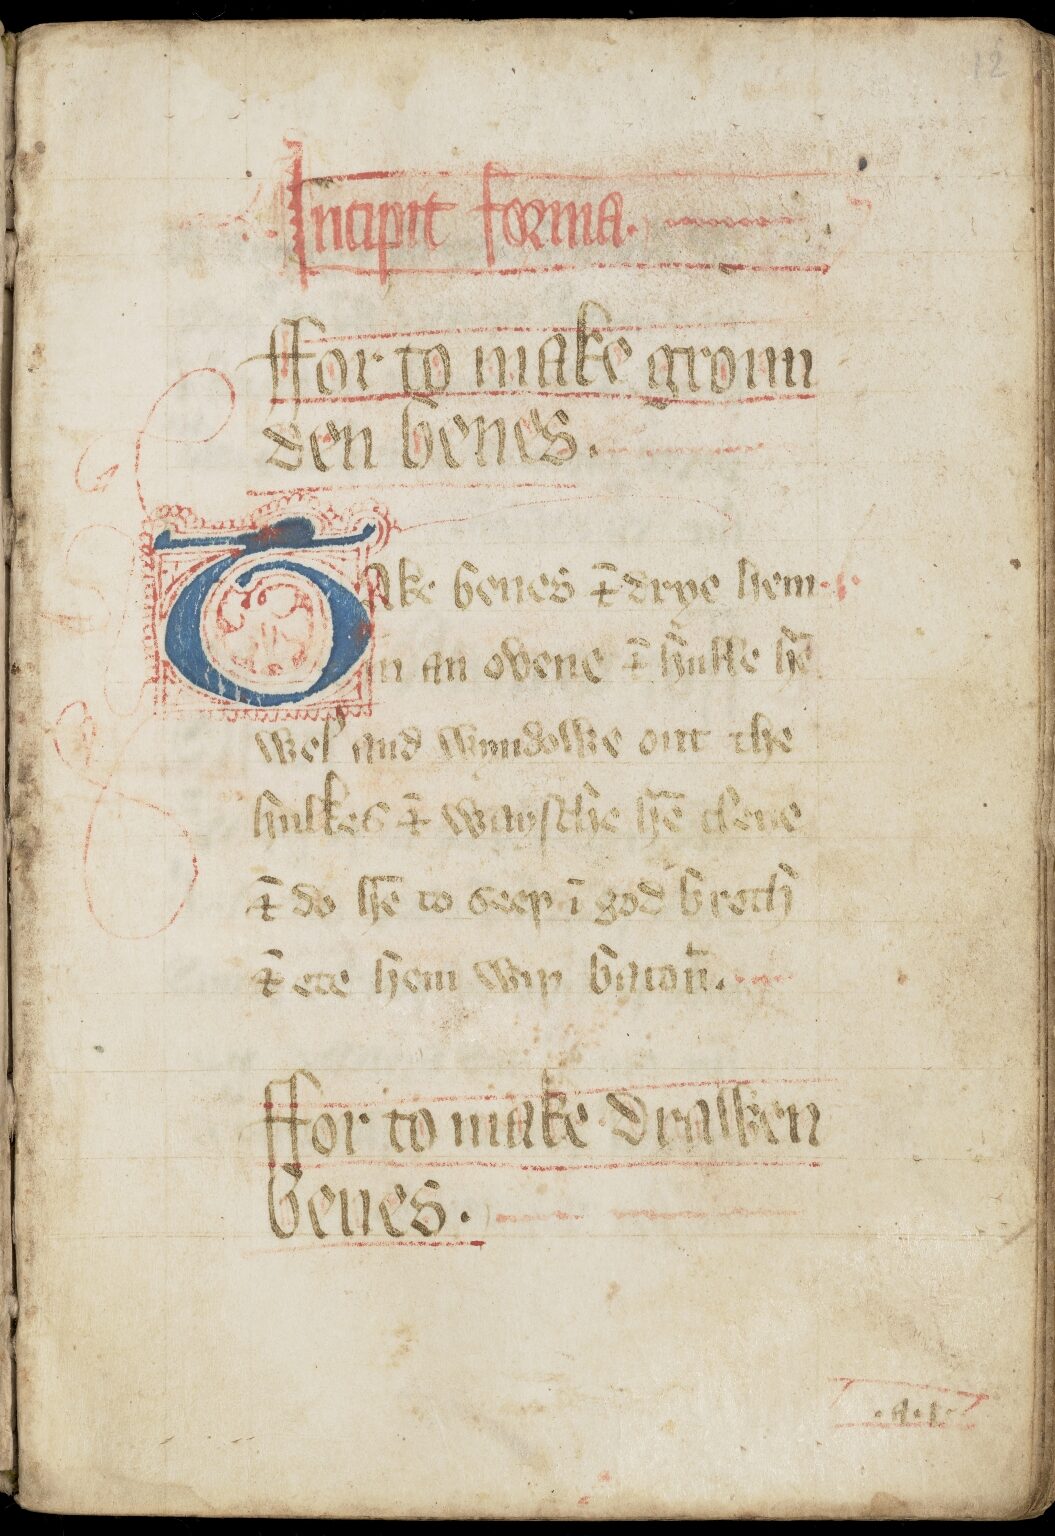 12
Incipit forma.
ffor to make groun
den benes.
Take benes ⁊ drye hem
in an ovene ⁊ hulke hē
wel and wyndowe out the
hulkes ⁊ waysche hē clene
⁊ do hē to seeþ ī god broth
⁊ ete hem wiþ bacon̄.
ffor to make drawen
benes.
.a.1.